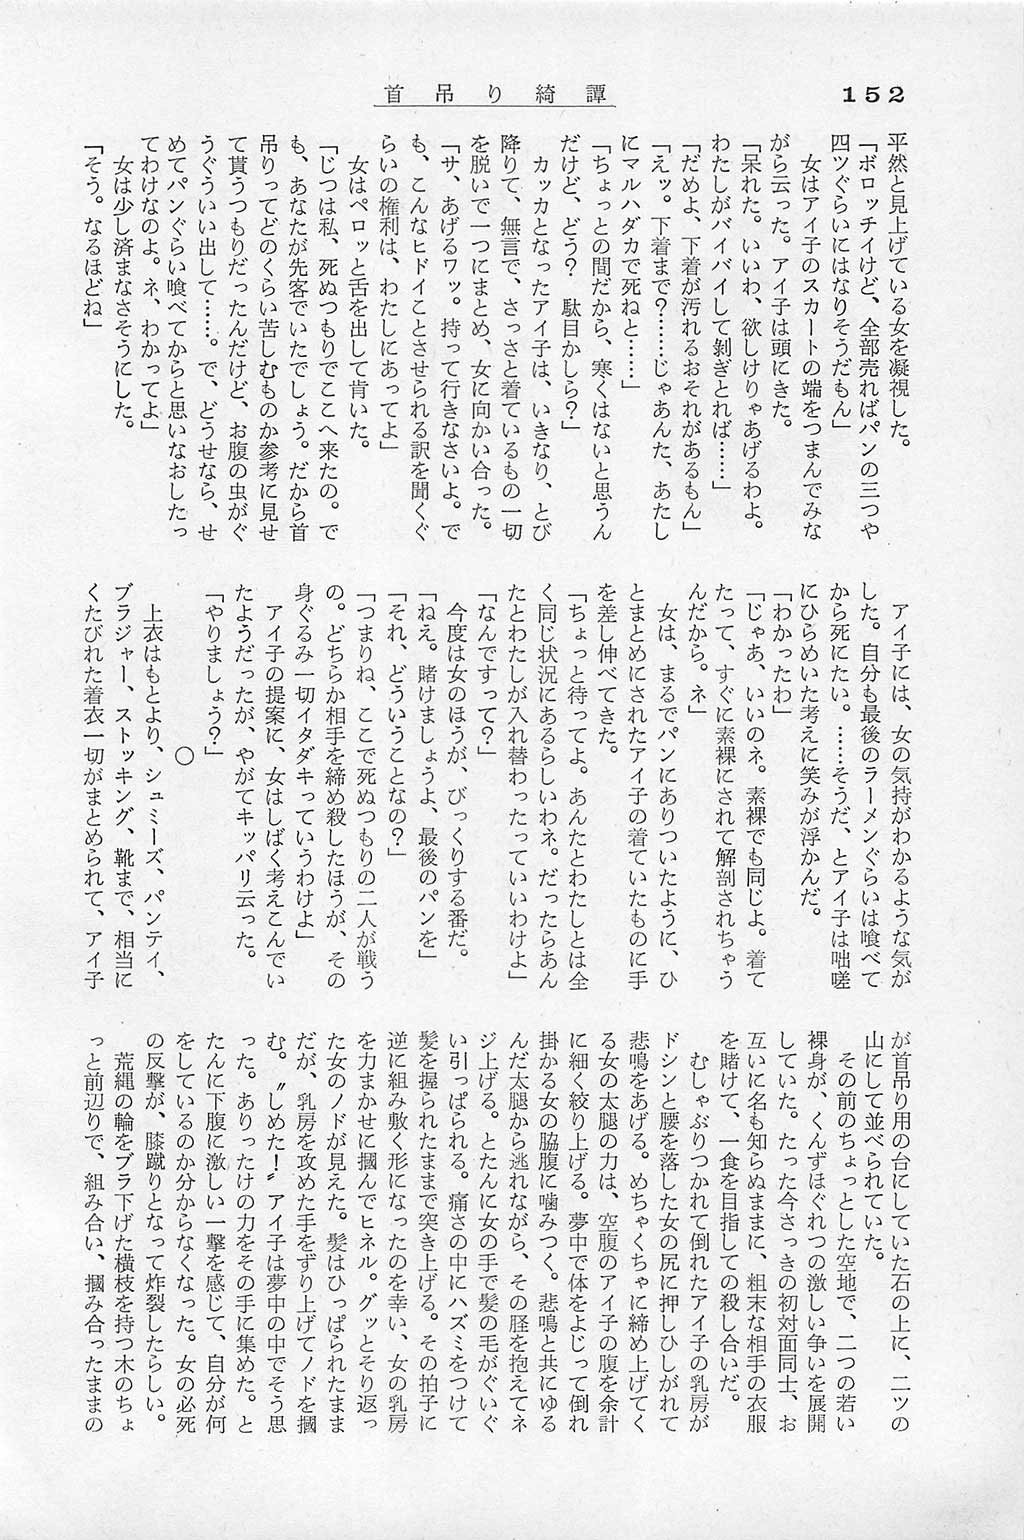 152
首吊り綺譚
平然と見上げている女を凝視した。
「ボロッチイけど、全部売ればパンの三つや
四ツぐらいにはなりそうだもん」
女はアイ子のスカートの端をつまんでみな
がら云った。アイ子は頭にきた。
「呆れた。いいわ、欲しけりゃあげるわよ。
わたしがバイバイして剝ぎとれば……」
「だめよ、下着が汚れるおそれがあるもん」
「えッ。下着まで？……じゃあんた、あたし
にマルハダカで死ねと……」
「ちょっとの間だから、寒くはないと思うん
だけど、どう？　駄目かしら？」
カッカとなったアイ子は、いきなり、とび
降りて、無言で、さっさと着ているもの一切
を脱いで一つにまとめ、女に向かい合った。
「サ、あげるワッ。持って行きなさいよ。で
も、こんなヒドイことさせられる訳を聞くぐ
らいの権利は、わたしにあってよ」
女はペロッと舌を出して肯いた。
「じつは私、死ぬつもりでここへ来たの。で
も、あなたが先客でいたでしょう。だから首
吊りってどのくらい苦しむものか参考に見せ
て貰うつもりだったんだけど、お腹の虫がぐ
うぐういい出して……。で、どうせなら、せ
めてパンぐらい喰べてからと思いなおしたっ
てわけなのよ。ネ、わかってよ」
女は少し済まなさそうにした。
「そう。なるほどね」
アイ子には、女の気持がわかるような気が
した。自分も最後のラーメンぐらいは喰べて
から死にたい。……そうだ、とアイ子は咄嗟
にひらめいた考えに笑みが浮かんだ。
「わかったわ」
「じゃあ、いいのネ。素裸でも同じよ。着て
たって、すぐに素裸にされて解剖されちゃう
んだから。ネ」
女は、まるでパンにありついたように、ひ
とまとめにされたアイ子の着ていたものに手
を差し伸べてきた。
「ちょっと待ってよ。あんたとわたしとは全
く同じ状況にあるらしいわネ。だったらあん
たとわたしが入れ替わったっていいわけよ」
「なんですって？」
今度は女のほうが、びっくりする番だ。
「ねえ。賭けましょうよ、最後のパンを」
「それ、どういうことなの？」
「つまりね、ここで死ぬつもりの二人が戦う
の。どちらか相手を締め殺したほうが、その
身ぐるみ一切イタダキっていうわけよ」
アイ子の提案に、女はしばく考えこんでい
たようだったが、やがてキッパリ云った。
「やりましょう？」
○
上衣はもとより、シュミーズ、パンティ、
ブラジャー、ストッキング、靴まで、相当に
くたびれた着衣一切がまとめられて、アイ子
が首吊り用の台にしていた石の上に、二ツの
山にして並べられていた。
その前のちょっとした空地で、二つの若い
裸身が、くんずほぐれつの激しい争いを展開
していた。たった今さっきの初対面同士、お
互いに名も知らぬままに、粗末な相手の衣服
を賭けて、一食を目指しての殺し合いだ。
むしゃぶりつかれて倒れたアイ子の乳房が
ドシンと腰を落した女の尻に押しひしがれて
悲鳴をあげる。めちゃくちゃに締め上げてく
る女の太腿の力は、空腹のアイ子の腹を余計
に細く絞り上げる。夢中で体をよじって倒れ
掛かる女の脇腹に嚙みつく。悲鳴と共にゆる
んだ太腿から逃れながら、その脛を抱えてネ
ジ上げる。とたんに女の手で髪の毛がぐいぐ
い引っぱられる。痛さの中にハズミをつけて
髪を握られたままで突き上げる。その拍子に
逆に組み敷く形になったのを幸い、女の乳房
を力まかせに摑んでヒネル。グッとそり返っ
た女のノドが見えた。髪はひっぱられたまま
だが、乳房を攻めた手をずり上げてノドを摑
む。〝しめた！〟アイ子は夢中の中でそう思
った。ありったけの力をその手に集めた。と
たんに下腹に激しい一撃を感じて、自分が何
をしているのか分からなくなった。女の必死
の反撃が、膝蹴りとなって炸裂したらしい。
荒縄の輪をブラ下げた横枝を持つ木のちょ
っと前辺りで、組み合い、摑み合ったままの